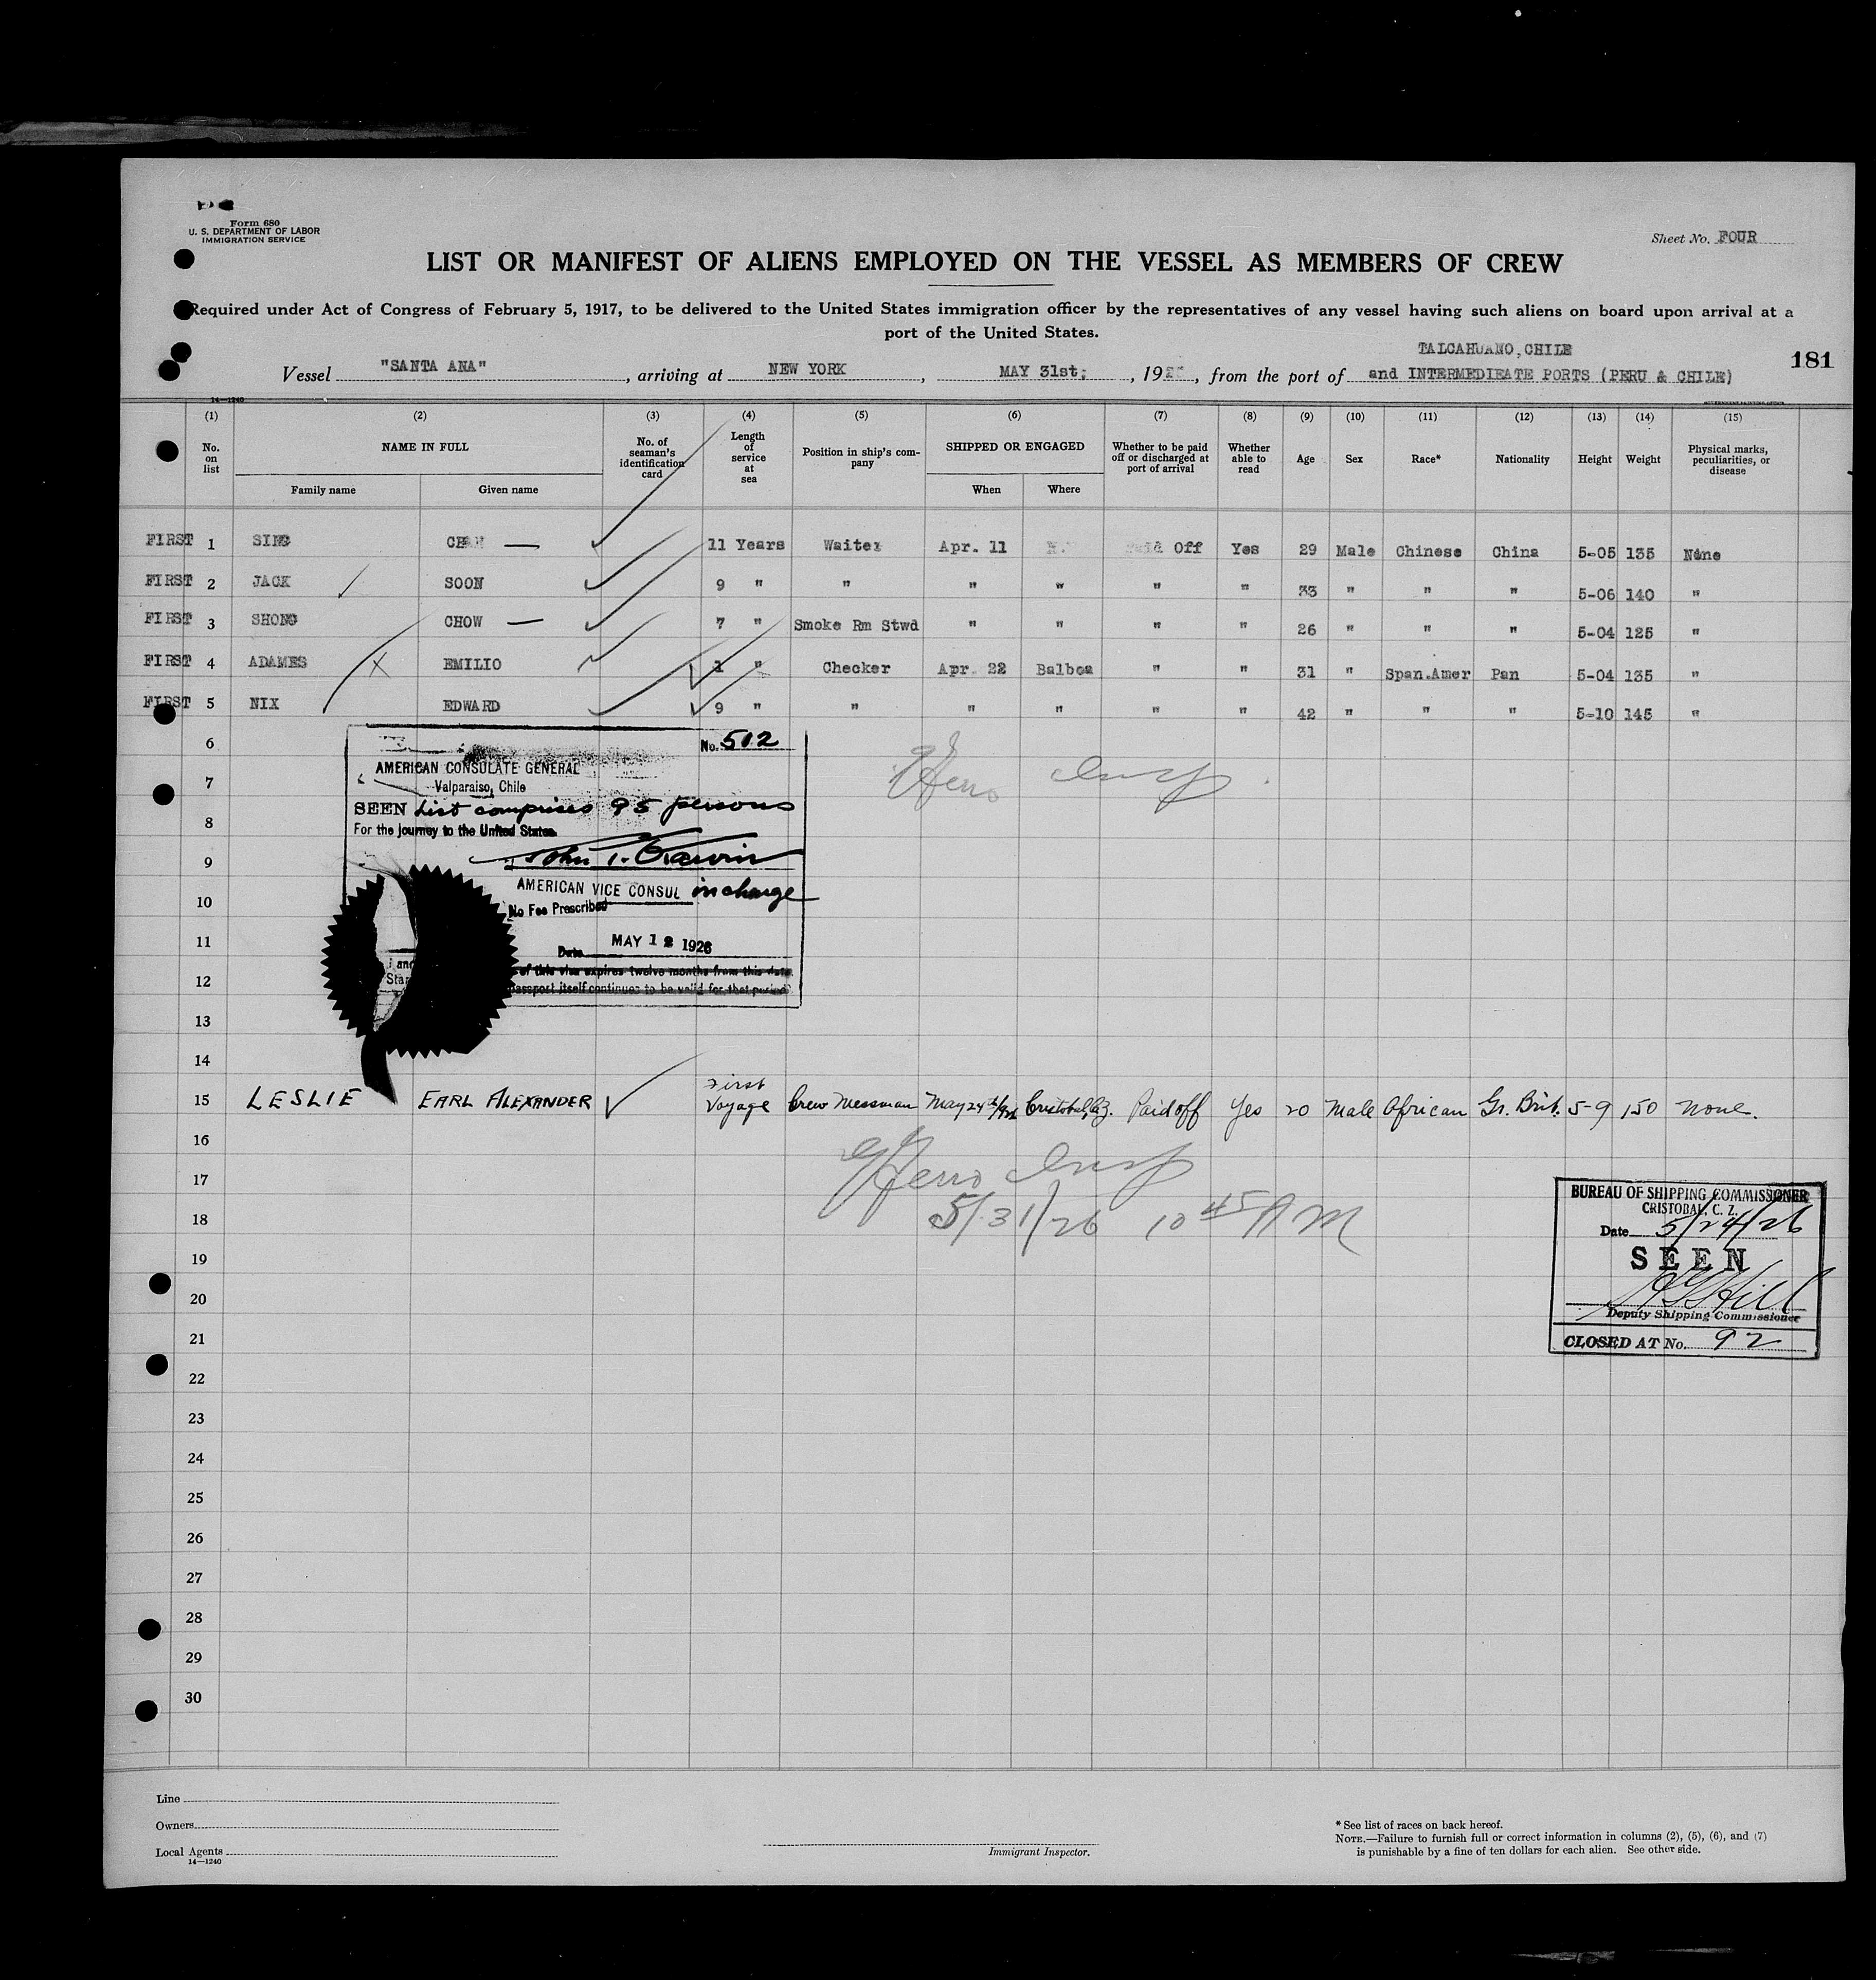 Form 680
U. S. DEPARTMENT OF LABOR
IMMIGRATION SERVICE
Sheet No. FOUR
LIST OR MANIFEST OF ALIENS EMPLOYED ON THE VESSEL AS MEMBERS OF CREW
Required under Act of Congress of February 5, 1917, to be delivered to the United States immigration officer by the representatives of any vessel having such aliens on board upon arrival at a
port of the United States.
TALCAHUANO, CHILE
181
Vessel "SANTA ANA", arriving at NEW YORK, MAY 31st;, 192, from the port of and INTERMEDIEATE PORTS (PERU & CHILE)
14—1240
(1) (2) (3) (4) (5) (6) (7) (8) (9) (10) (11) (12) (13) (14) (15)
No. on list NAME IN FULL No. of seaman's identification card Length of service at sea Position in ship's company SHIPPED OR ENGAGED Whether to be paid off or discharged at port of arrival Whether able to read Age Sex Race* Nationality Height Weight Physical marks, peculiarities, or disease
Family name Given name When Where
FIRST 1 SING 11 Years Waiter Apr. 11 Paid Off Yes 29 Male Chinese China 5-05 135 None
FIRST 2 JACK SOON 9 " " " " " " 33 " " " 5-06 140 "
FIRST 3 SHONG CHOW 7 " Smoke Rm Stwd " " " " 26 " " " 5-04 125 "
FIRST 4 ADAMES X EMILIO 1 " Checker Apr. 22 Balboa " " 31 " Span.Amer Pan 5-04 135 "
FIRST 5 NIX EDWARD 9 " " " " " " 42 " " " 5-10 145 "
6
7
8
9
10
11
12
13
14
No. 512
AMERICAN CONSULATE GENERAL
Valparaiso, Chile
SEEN List comprises 95 persons
For the journey to the United States.
John T.
AMERICAN VICE CONSUL in charge
No Fee Prescribed
Date MAY 12 1926
of this visa expires twelve months from this date
passport itself continues to be valid for that period
Insp
15 LESLIE EARL ALEXANDER First Voyage Crew Messman May 24th/926 Cristobal, C.Z. Paid off Yes 20 Male African Gr. Brit. 5-9 150 None.
16
17
18
Insp
5/31/26 10 45 AM
BUREAU OF SHIPPING COMMISSIONER
CRISTOBAL, C. Z.
Date 5/24/26
SEEN
Hill
Deputy Shipping Commissioner
CLOSED AT No. 92
19
20
21
22
23
24
25
26
27
28
29
30
Line
Owners
Local Agents
14—1240
Immigrant Inspector.
* See list of races on back hereof.
NOTE.—Failure to furnish full or correct information in columns (2), (5), (6), and (7)
is punishable by a fine of ten dollars for each alien. See other side.